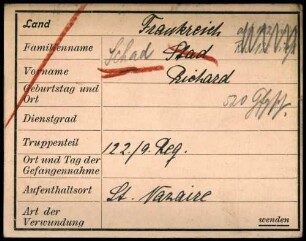 Land Frankreich
Familienname Schad Stad
Vorname Richard
Geburtstag und
Ort
Dienstgrad
Truppenteil 122/9. Reg.
Ort und Tag der
Gefangennahme
Aufenthaltsort St. Nazaire
Art der
Verwundung
wenden